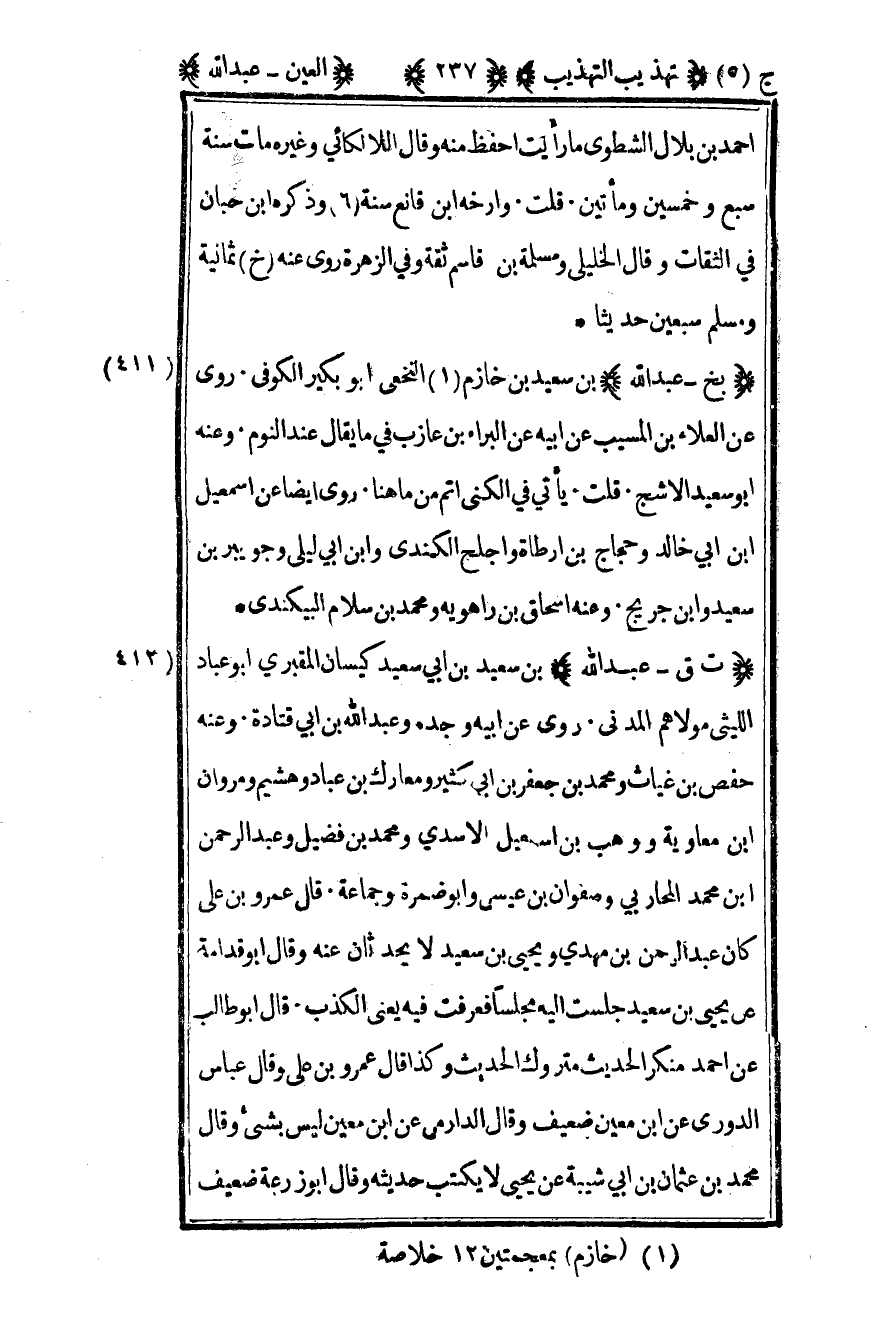 ج (٥) ﴿ تهذيب التهذيب ﴾ ﴿ ٢٣٧ ﴾ ﴿ العين ـ عبدالله ﴾
احمد بن بلال الشطوى مارأيت احفظ منه وقال اللالكائي وغيره مات سنة
سبع و خمسين ومأتين · قلت · وارخه ابن قانع سنة (٦) وذكره ابن حبان
في الثقات و قال الخليلى ومسلمة بن قاسم ثقة وفي الزهرة روى عنه (خ) ثمانية
ومسلم سبعين حديثا *
﴿ بخ ـ عبدالله ﴾ بن سعيد بن خازم (١) النخعى ابو بكير الكوفى · روى (٤١١)
عن العلاء بن المسيب عن ابيه عن البراء بن عازب في مايقال عند النوم · وعنه
ابوسعيد الاشج · قلت · يأتي في الكنى اتم من ماهنا · روى ايضا عن اسمعيل
ابن ابي خالد وحجاج بن ارطاة واجلح الكندى وابن ابي ليلى وجويبر بن
سعيد وابن جريج · وعنه اسحاق بن راهويه ومحمد بن سلام البيكندى *
﴿ ت ق ـ عبدالله ﴾ بن سعيد بن ابي سعيد كيسان المقبري ابوعباد (٤١٢
الليثى مولاهم المدنى · روى عن ابيه وجده وعبدالله بن ابي قتادة · وعنه
حفص بن غياث ومحمد بن جعفر بن ابي كثير ومعارك بن عباد وهشيم ومروان
ابن معاوية و وهب بن اسمعيل الاسدي ومحمد بن فضيل وعبدالرحمن
ابن محمد المحاربي وصفوان بن عيسى وابوضمرة وجماعة · قال عمرو بن على
كان عبدالرحمن بن مهدي ويحيى بن سعيد لا يحدثان عنه وقال ابوقدامة
عن يحيى بن سعيد جلست اليه مجلساً فعرفت فيه يعنى الكذب · قال ابوطالب
عن احمد منكر الحديث متروك الحديث وكذا قال عمرو بن على وقال عباس
الدورى عن ابن معين ضعيف وقال الدارمى عن ابن معين ليس بشئ وقال
محمد بن عثمان بن ابي شيبة عن يحيى لا يكتب حديثه وقال ابوزرعة ضعيف
(١) (خازم) بمعجمتين ١٢ خلاصة